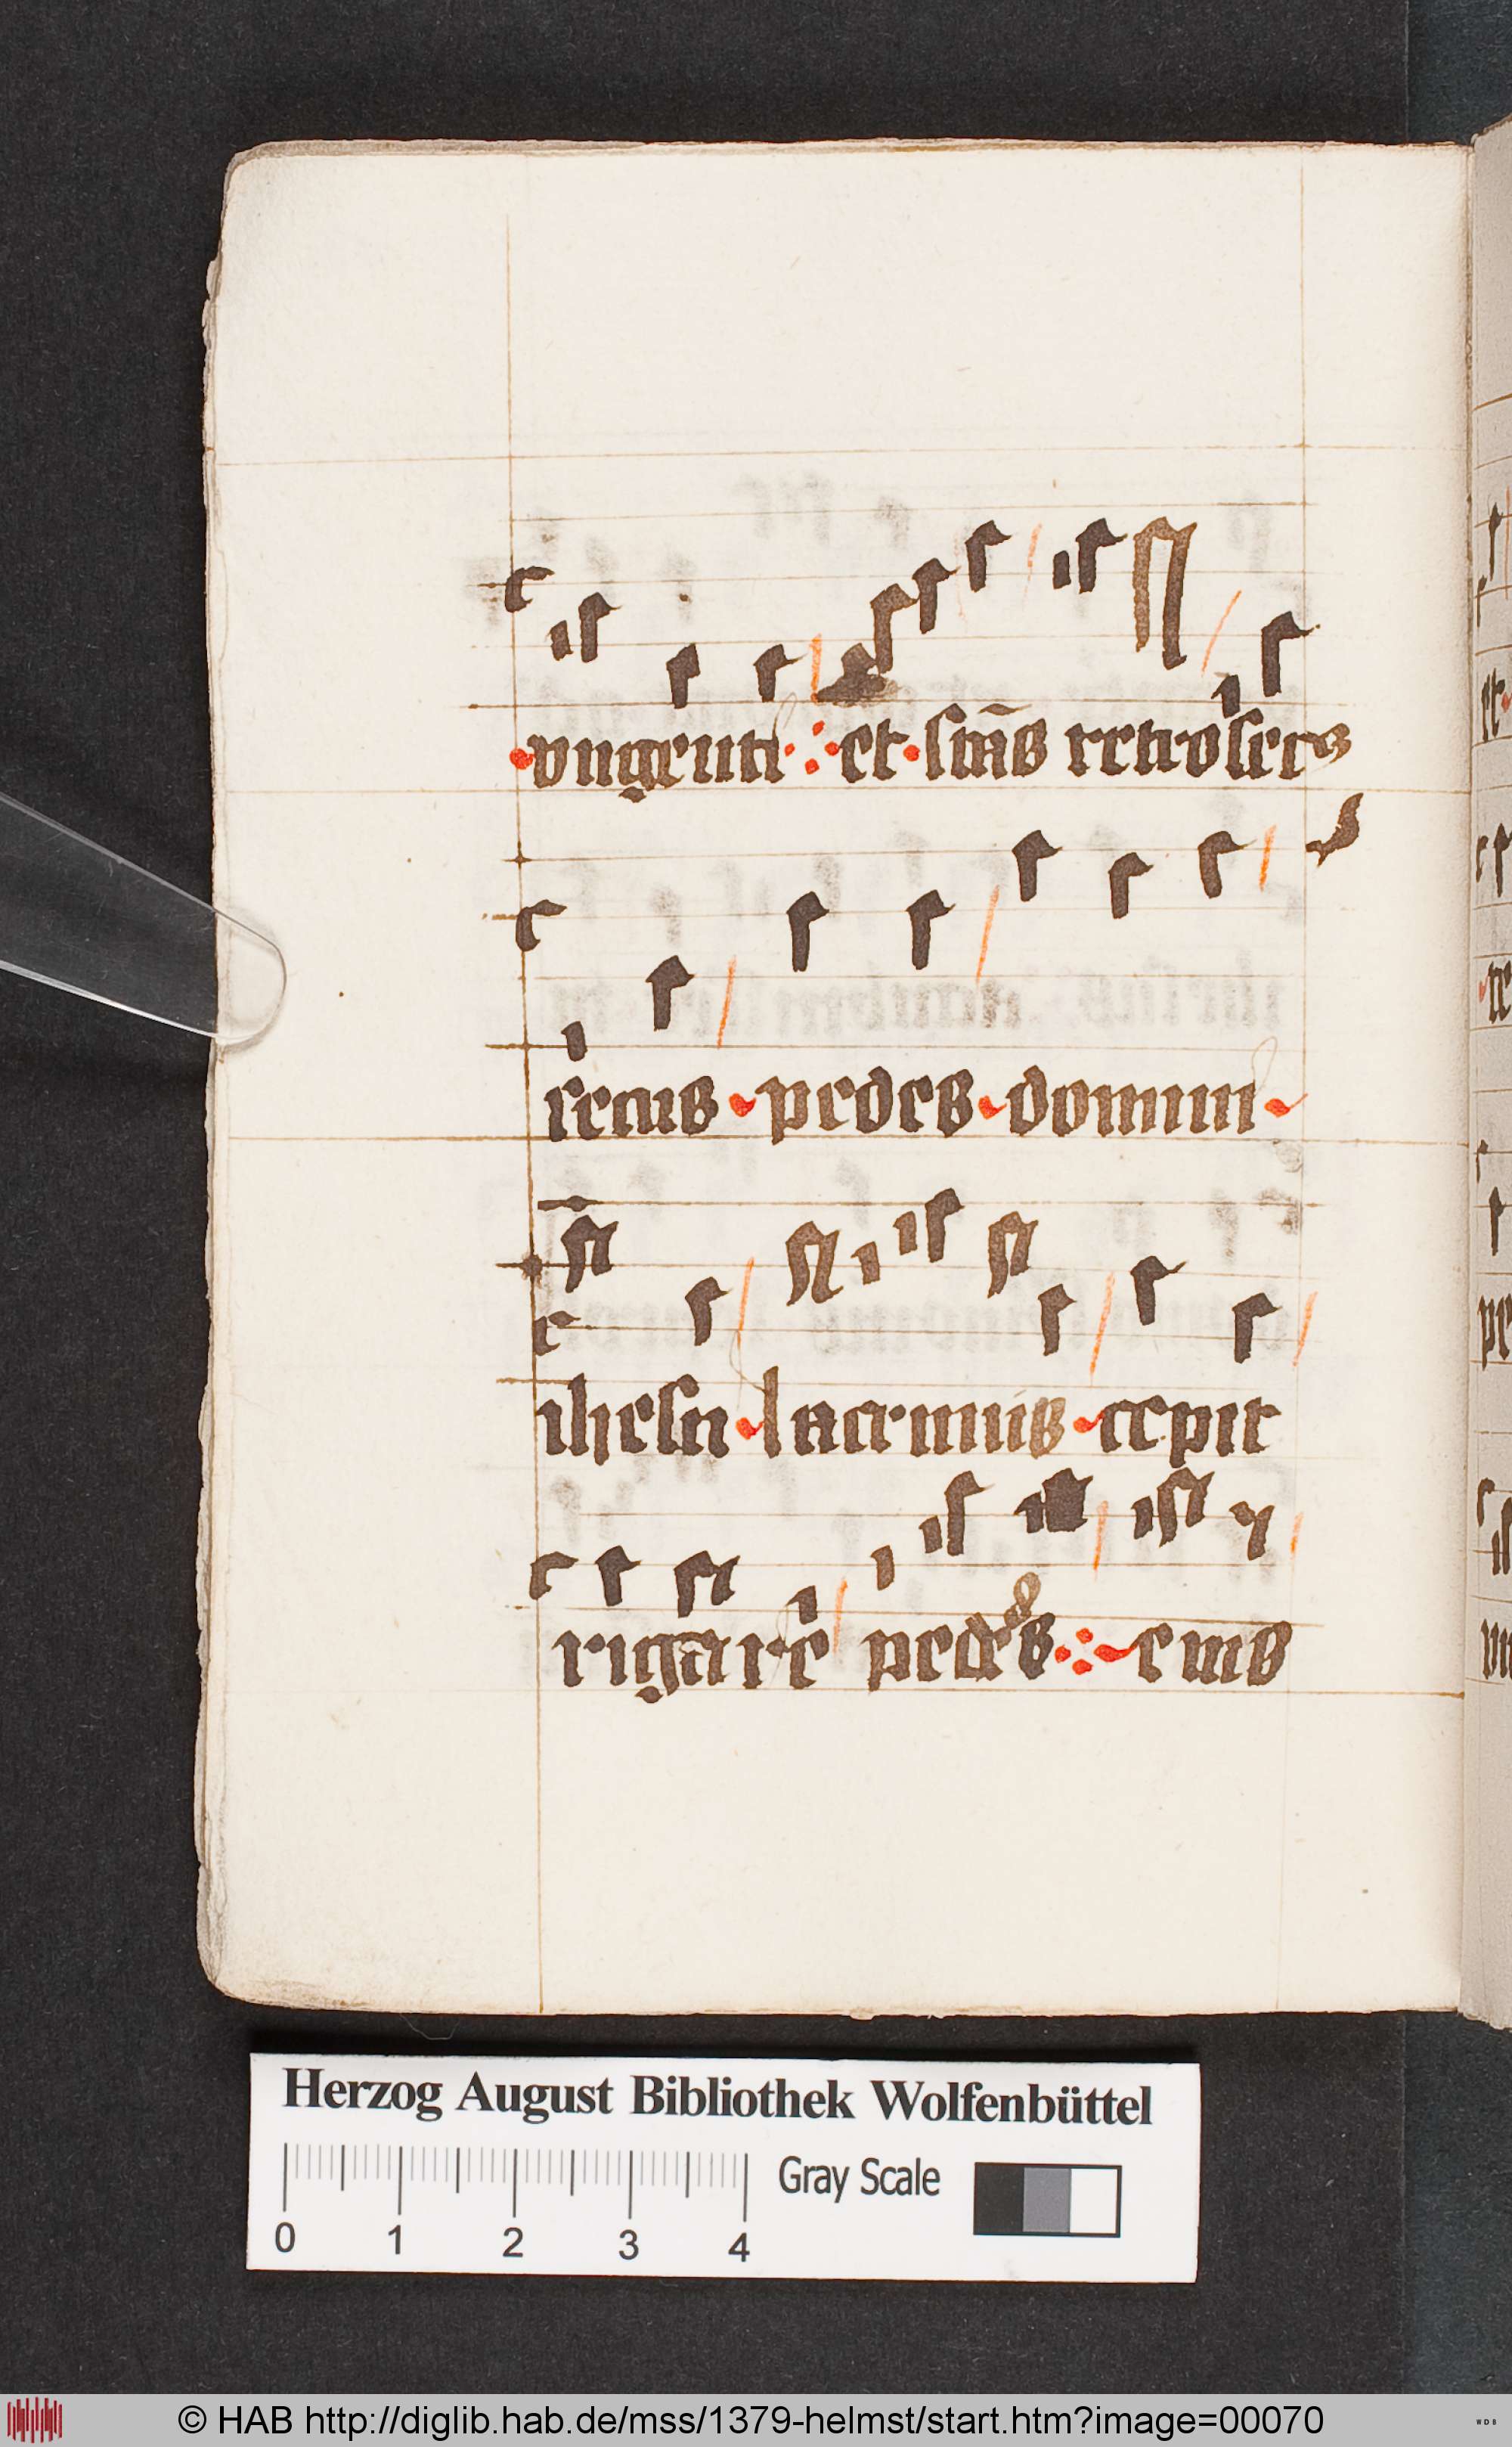 vngenti et stās retro sec9
secus pedes domini
ihesu lacrimis cepit
rigare pedes eius
Herzog August Bibliothek Wolfenbüttel
0 1 2 3 4
Gray Scale
© HAB http://diglib.hab.de/mss/1379-helmst/start.htm?image=00070